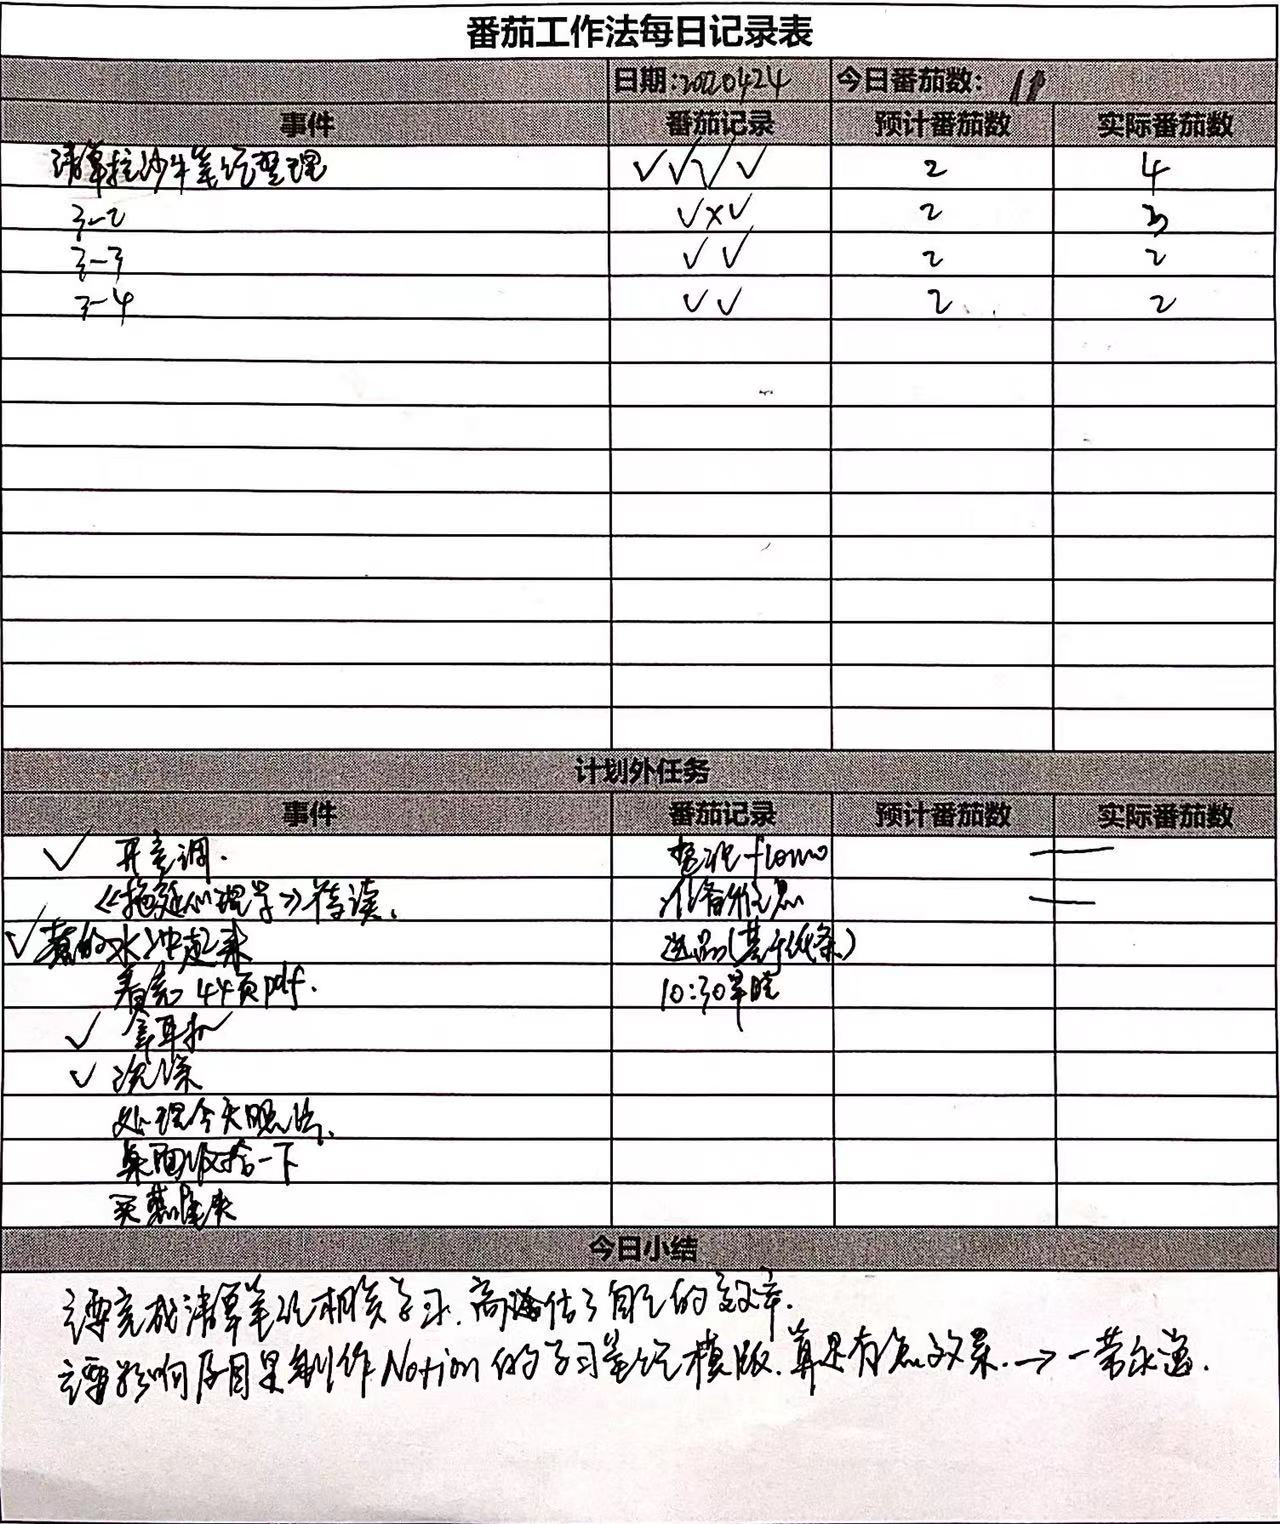 番茄工作法每日记录表
日期:20220424 今日番茄数: 11
事件 番茄记录 预计番茄数 实际番茄数
清单控沙牛笔记整理 ✓✓✓✓ 2 4
3-2 ✓×✓ 2 3
3-3 ✓✓ 2 2
3-4 ✓✓ 2 2
计划外任务
事件 番茄记录 预计番茄数 实际番茄数
✓ 开空调. 整理flomo —
《拖延心理学》待读. 准备休息 —
✓ 煮的水冲起来 选品(基于线条)
看完44页pdf. 10:30早睡
✓ 拿耳机
✓ 洗澡
处理今天账片.
桌面收拾一下
买燕尾夹
主要完成清单笔记相关学习.高估了自己的效率.
主要影响原因是制作Notion的学习笔记模版.算是有点效果.→一劳永逸.
今日小结